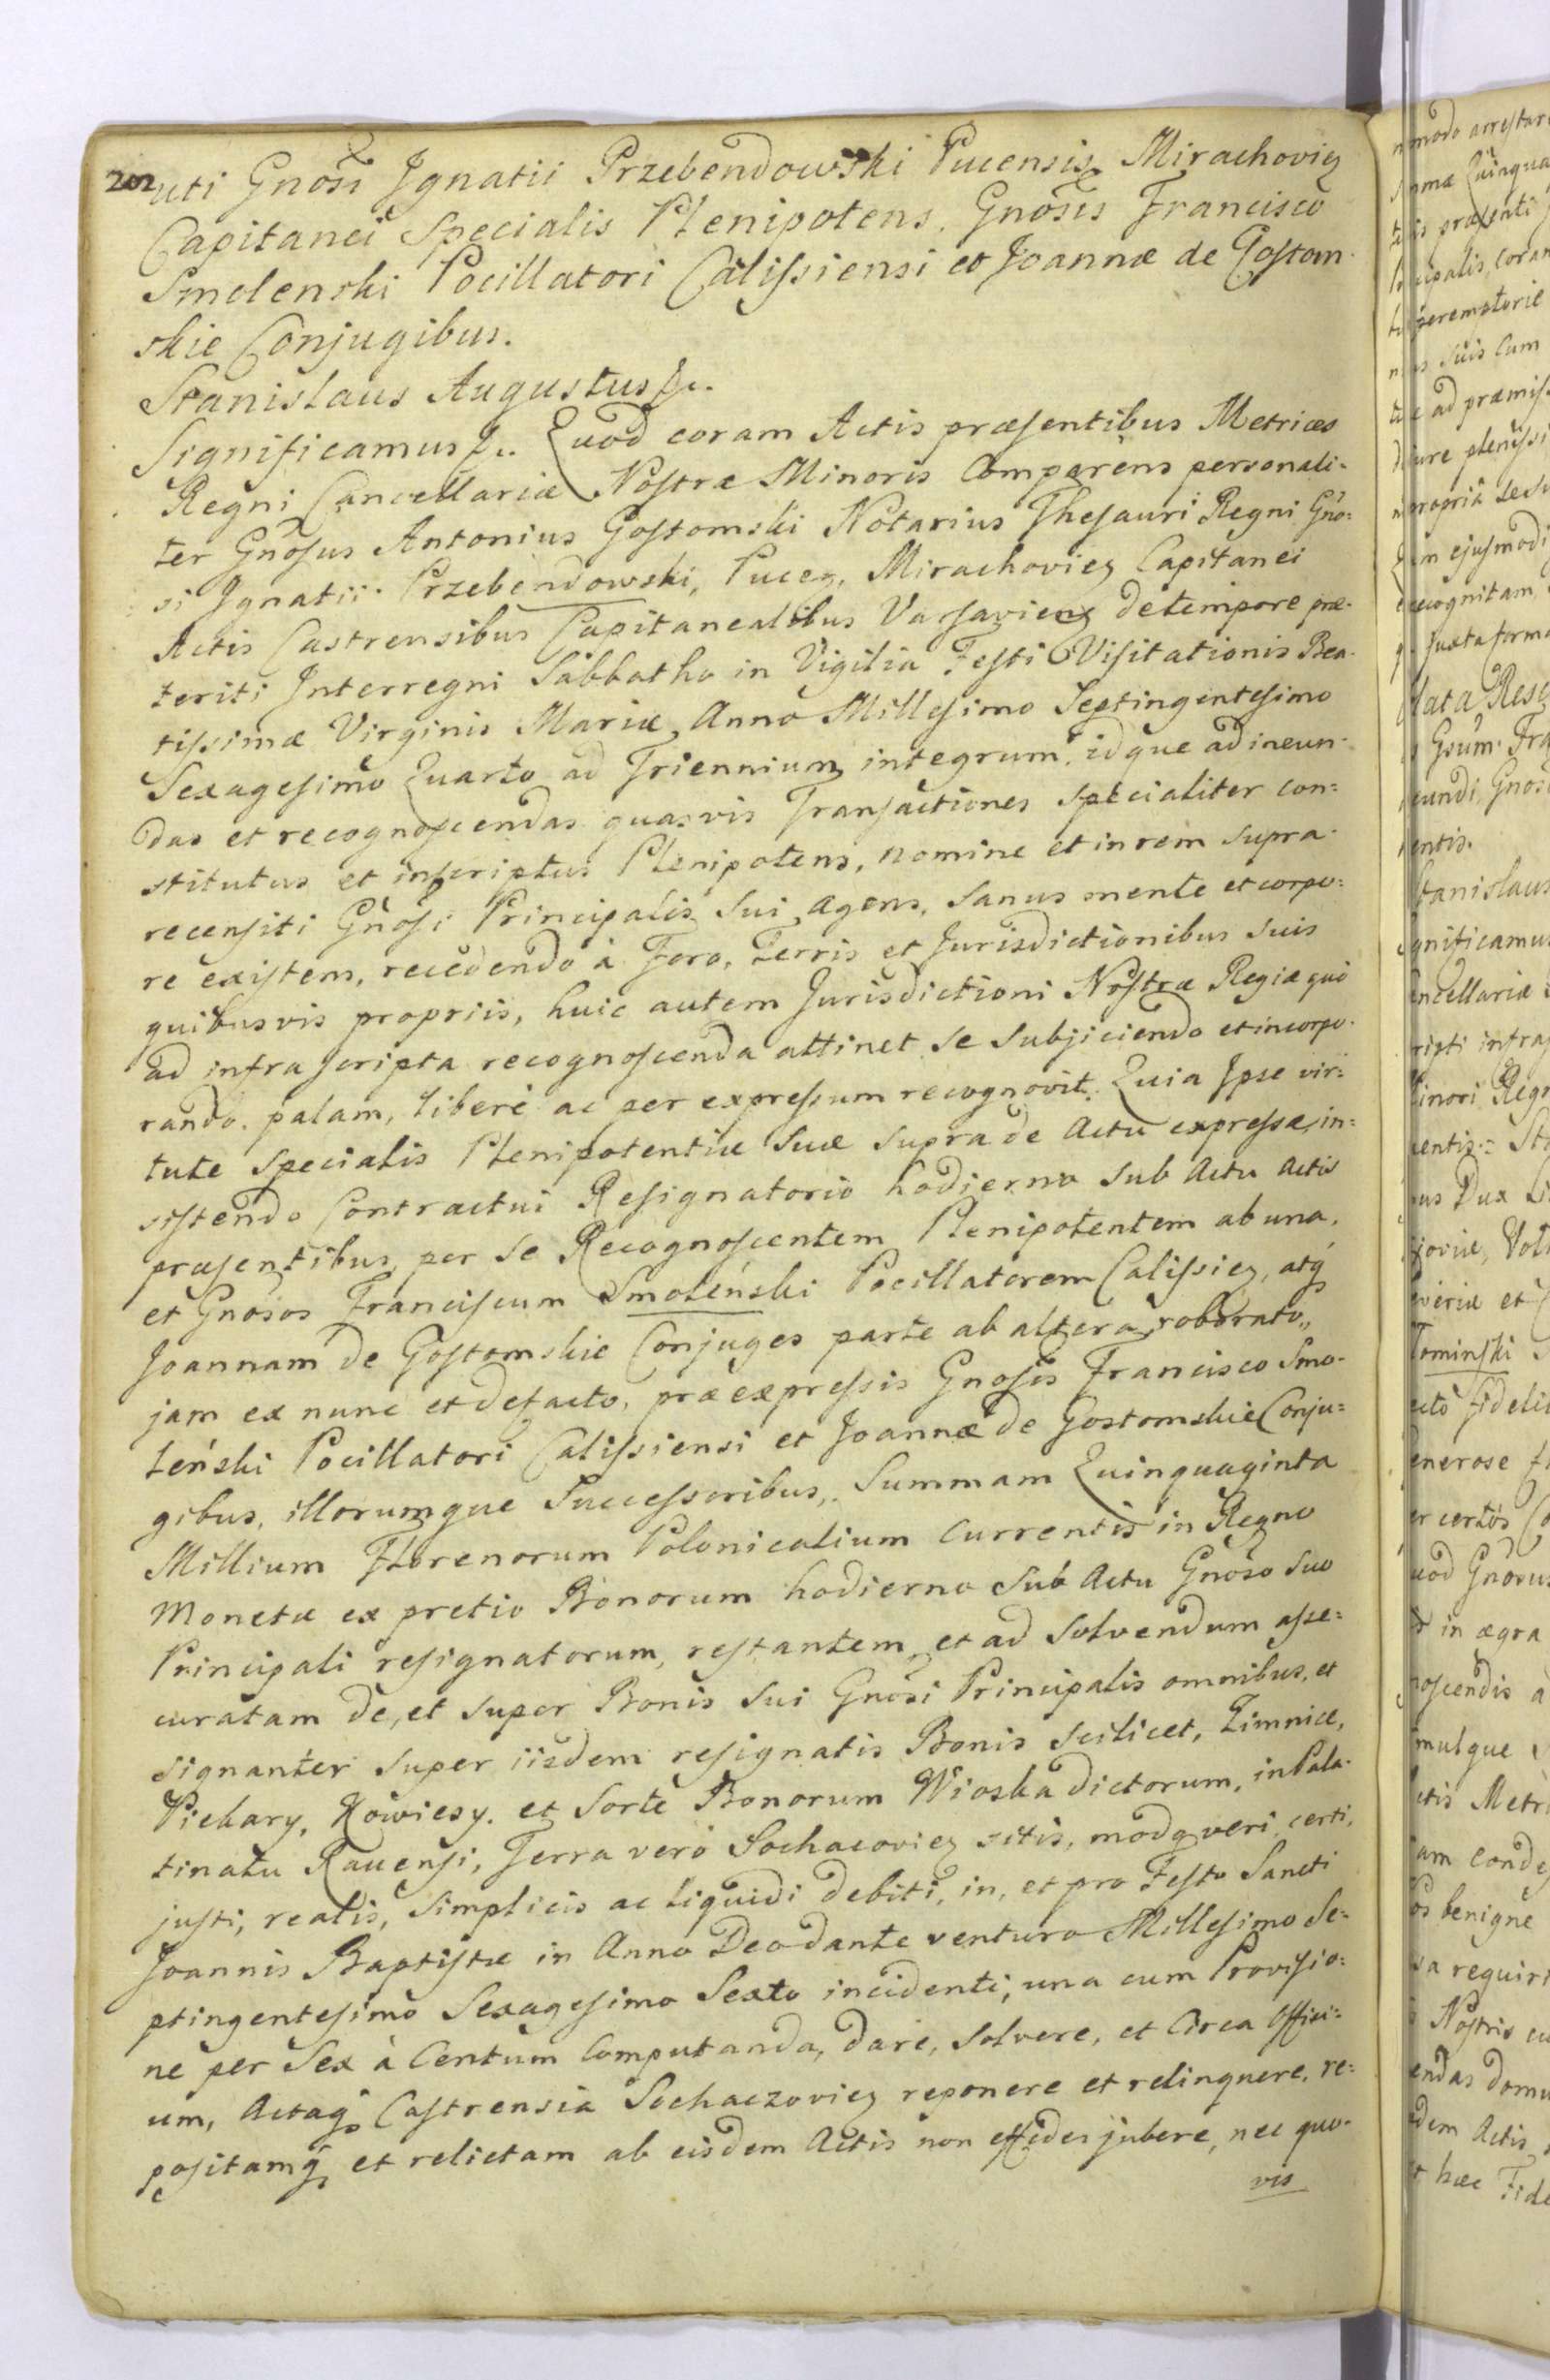 202
uti Gnosi Ignatii Przebendowski Pucensis, Mirachoviens
Capitanei Specialis Plenipotens, Gnosis Francisco
Smolenski Pocillatori Calissiensi et Joannæ de Gostom-
skie Conjugibus.
Stanislaus Augustus &c.
Significamus &c. Quod coram Actis præsentibus Metrices
Regni Cancellariæ Nostræ Minoris Comparens personali-
ter Gnosus Antonius Gostomski Notarius Thesauri Regni Gno-
si Ignatii Przebendowski, Pucen, Mirachovien Capitanei
Actis Castrensibus Capitanealibus Varsavien de tempore præ-
teriti Interregni Sabbatho in Vigilia Festi Visitationis Bea-
tissimæ Virginis Mariæ, Anno Millesimo Septingentesimo
Sexagesimo Quarto ad Triennium integrum, idque ad ineun-
das et recognoscendas quasvis Transactiones specialiter con-
stitutus et inscriptus Plenipotens, nomine et in rem supra-
recensiti Gnosi Principalis sui agens, sanus mente et corpo-
re existens, recedendo à Foro, Terris et Jurisdictionibus suis
quibusvis propriis, huic autem Jurisdictioni Nostræ Regiæ quò
ad infrascripta recognoscenda attinet se subjiciendo et incorpo-
rando. palam, liberè ac per expressum recognovit. Quia Ipse vir-
tute specialis Plenipotentiæ suæ supra de Actu expressæ, in-
sistendo Contractui Resignatorio hodierno sub Actu Actis
præsentibus, per se Recognoscentem Plenipotentem ab una,
et Gnosos Franciscum Smoleński Pocillatorem Calissien, atq
Joannam de Gostomskie Conjuges parte ab altera, roborato,
jam ex nunc et defacto, præexpressis Gnosis Francisco Smo-
leński Pocillatori Calissiensi et Joannæ de Gostomskie Conju-
gibus, illorumque Successoribus, Summam Quinquaginta
Millium Florenorum Polonicalium Currentis in Regno
Monetæ ex pretio Bonorum hodierno sub Actu Gnoso suo
Principali resignatorum, restantem et ad solvendum asse-
curatam de, et super Bonis sui Gnosi Principalis omnibus, et
signanter super iisdem resignatis Bonis scilicet, Zimnice,
Piekary, Kowiesy. et Sorte Bonorum Wioska dictorum, in Pala-
tinatu Ravensi, Terra verò Sochacovien sitis, modo veri, certi,
justi, realis, simplicis ac liquidi debiti, in, et pro Festo Sancti
Joannis Baptistæ in Anno Deo dante venturo Millesimo Se-
ptingentesimo Sexagesimo Sexto incidenti, una cum Provisio-
ne per Sex à Centum Computanda, dare, solvere, et Circa Offici-
um, Actaq Castrensia Sochaczovien reponere et relinquere, re-
positamq et relictam ab eisdem Actis non jubere, nec quo-
vis